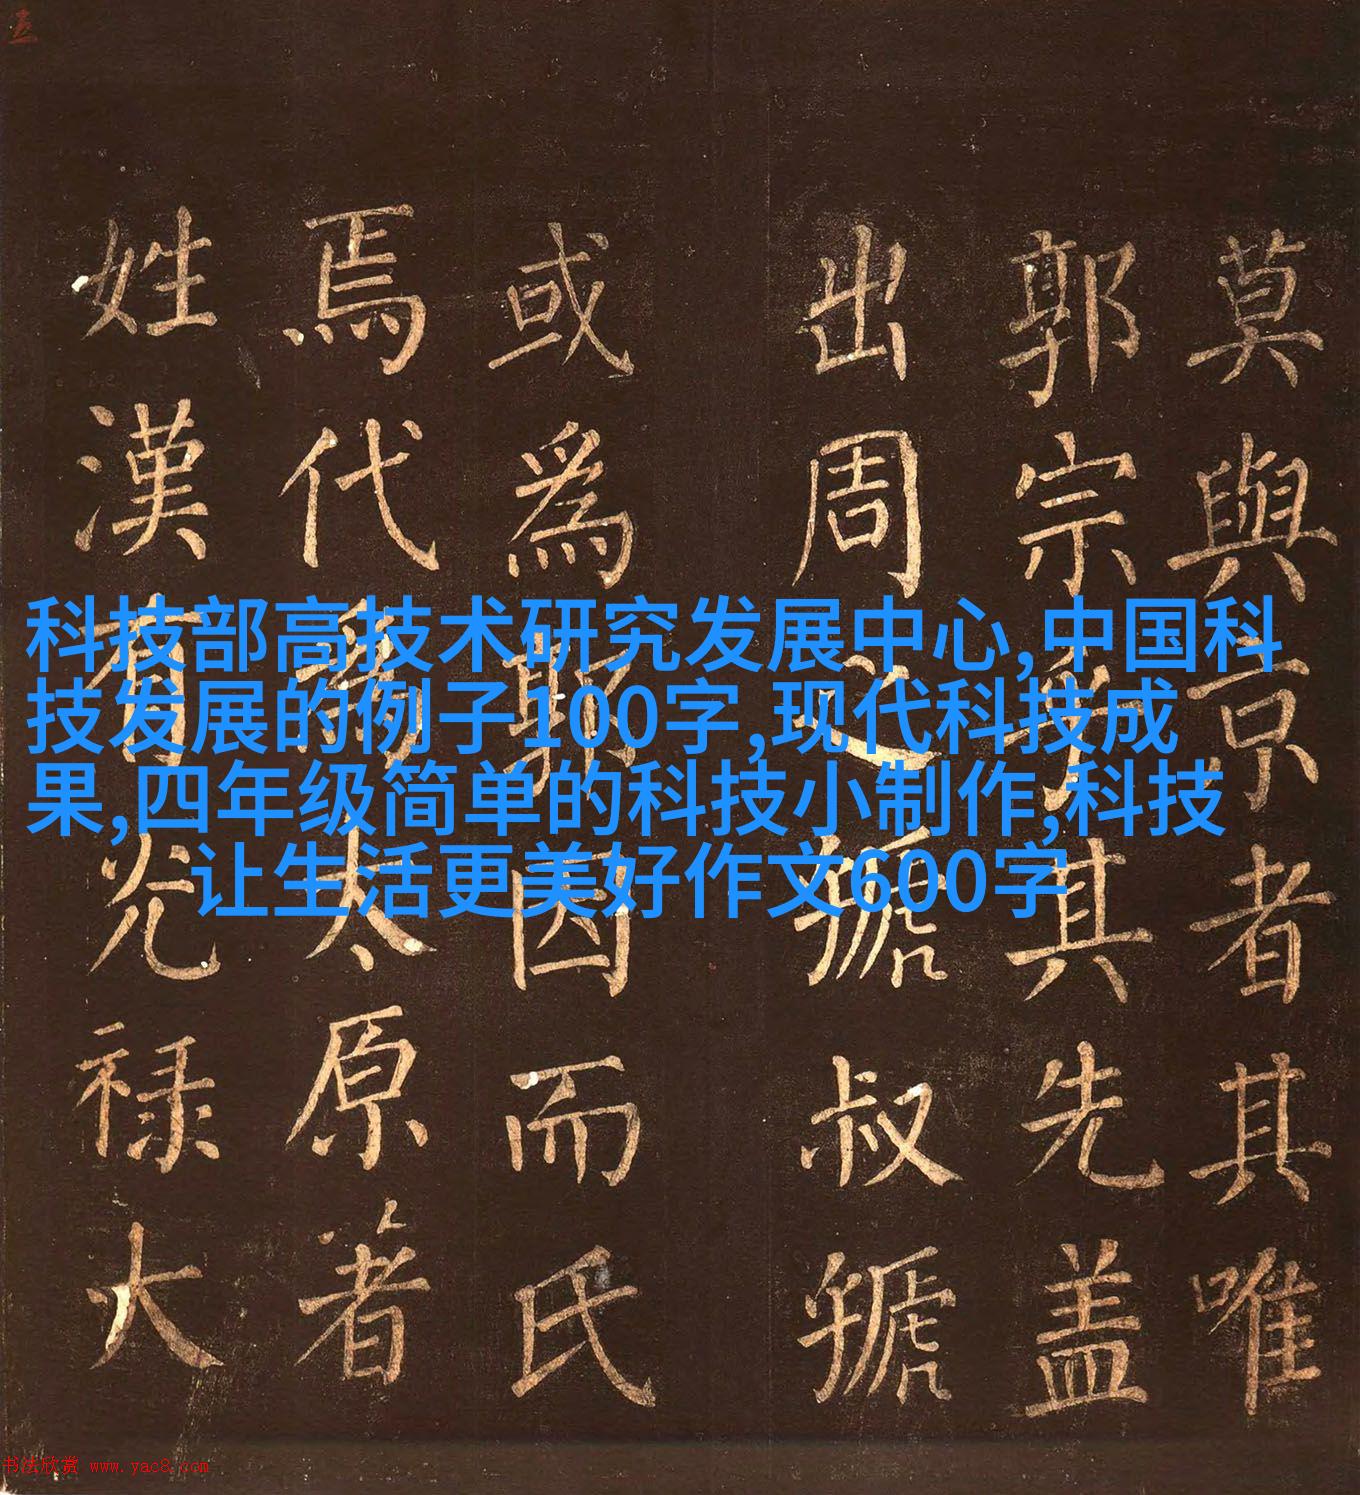 莫與京者其唯
郭宗乎其先盖
出周之虢叔虢
或為郭因而氏
焉代為太原著
姓漢有光禄大
科技部高技术研究发展中心,中国科
技发展的例子100字,现代科技成
果,四年级简单的科技小制作,科技
让生活更美好作文600字
书法欣赏 www.yac8.com